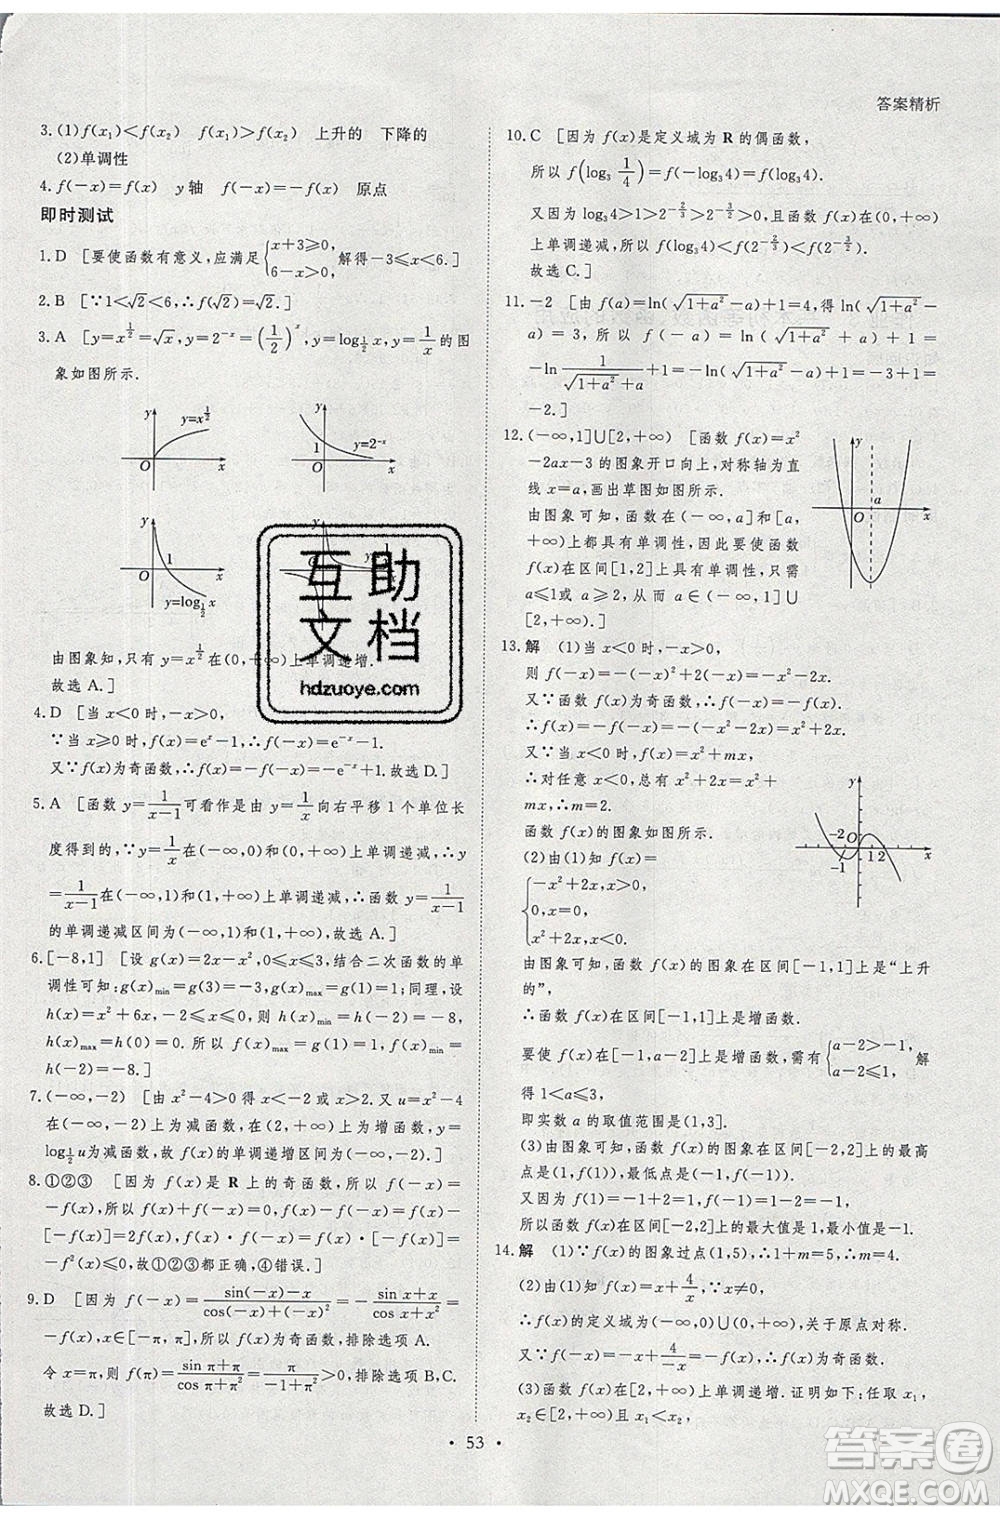 答案精析
3. (1)f(x₁)<f(x₂)　f(x₁)>f(x₂)　上升的　下降的
(2)单调性
4. f(-x)=f(x)　y轴　f(-x)=-f(x)　原点
即时测试
1. D　[要使函数有意义,应满足{x+3≥0, 6-x>0, 解得-3≤x<6.]
2. B　[∵1<√2<6,∴f(√2)=√2.]
3. A　[y=x^(1/2)=√x,y=2^(-x)=(1/2)^x,y=log_(1/2)x,y=1/x的图
象如图所示.
y　y=x^(1/2)　O　x
y　1　y=2^(-x)　O　x
y　1　O　x　y=log_(1/2)x
由图象知,只有y=x^(1/2)在(0,+∞)上单调递增.
故选A.]
4. D　[当x<0时,-x>0,
∵当x≥0时,f(x)=eˣ-1,∴f(-x)=e⁻ˣ-1.
又∵f(x)为奇函数,∴f(x)=-f(-x)=-e⁻ˣ+1.故选D.]
5. A　[函数y=1/(x-1)可看作是由y=1/x向右平移1个单位长
度得到的,∵y=1/x在(-∞,0)和(0,+∞)上单调递减,∴y
=1/(x-1)在(-∞,1)和(1,+∞)上单调递减,∴函数y=1/(x-1)
的单调递减区间为(-∞,1)和(1,+∞),故选A.]
6. [-8,1]　[设g(x)=2x-x²,0≤x≤3,结合二次函数的单
调性可知:g(x)min=g(3)=-3,g(x)max=g(1)=1;同理,设
h(x)=x²+6x,-2≤x≤0,则h(x)min=h(-2)=-8,
h(x)max=h(0)=0.所以f(x)max=g(1)=1,f(x)min=
h(-2)=-8.]
7. (-∞,-2)　[由x²-4>0得x<-2或x>2.又u=x²-4
在(-∞,-2)上为减函数,在(2,+∞)上为增函数,y=
log_(1/2)u为减函数,故f(x)的单调递增区间为(-∞,-2).]
8. ①②③　[因为f(x)是R上的奇函数,所以f(-x)=
-f(x),所以f(-x)+f(x)=0,f(x)-f(-x)=f(x)-
[-f(x)]=2f(x),f(x)·f(-x)=f(x)·[-f(x)]=
-f²(x)≤0,故①②③都正确,④错误.]
9. D　[因为f(-x)=(sin(-x)-x)/(cos(-x)+(-x)²)=-(sin x+x)/(cos x+x²)=
-f(x),x∈[-π,π],所以f(x)为奇函数,排除选项A.
令x=π,则f(π)=(sin π+π)/(cos π+π²)=π/(-1+π²)>0,排除选项B,C.
故选D.]
10. C　[因为f(x)是定义域为R的偶函数,
所以f(log₃ 1/4)=f(-log₃4)=f(log₃4).
又因为log₃4>1>2^(-2/3)>2^(-3/2)>0,且函数f(x)在(0,+∞)
上单调递减,所以f(log₃4)<f(2^(-2/3))<f(2^(-3/2)).
故选C.]
11. -2　[由f(a)=ln(√(1+a²)-a)+1=4,得ln(√(1+a²)
-a)=3,所以f(-a)=ln(√(1+a²)+a)+1=
-ln 1/(√(1+a²)+a)+1=-ln(√(1+a²)-a)+1=-3+1=
-2.]
12. (-∞,1]∪[2,+∞)　[函数f(x)=x²
-2ax-3的图象开口向上,对称轴为直
线x=a,画出草图如图所示.
y　O　a　x
由图象可知,函数在(-∞,a]和[a,+∞)
上都具有单调性,因此要使函数
f(x)在区间[1,2]上具有单调性,只需
a≤1或a≥2,从而a∈(-∞,1]∪
[2,+∞).]
13. 解　(1)当x<0时,-x>0,
则f(-x)=-(-x)²+2(-x)=-x²-2x.
又∵函数f(x)为奇函数,∴f(-x)=-f(x),
∴f(x)=-f(-x)=-(-x²-2x)=x²+2x.
又∵当x<0时,f(x)=x²+mx,
∴对任意x<0,总有x²+2x=x²+
mx,∴m=2.
函数f(x)的图象如图所示.
y　-2　O　-1　1　2　x
(2)由(1)知f(x)=
{-x²+2x,x>0,
0,x=0,
x²+2x,x<0,
由图象可知,函数f(x)的图象在区间[-1,1]上是“上升
的”,
∴函数f(x)在区间[-1,1]上是增函数.
要使f(x)在[-1,a-2]上是增函数,需有{a-2>-1, a-2≤1, 解
得1<a≤3,
即实数a的取值范围是(1,3].
(3)由图象可知,函数f(x)的图象在区间[-2,2]上的最高点
是(1,f(1)),最低点是(-1,f(-1)).
又因为f(1)=-1+2=1,f(-1)=1-2=-1,
所以函数f(x)在区间[-2,2]上的最大值是1,最小值是-1.
14. 解　(1)∵f(x)的图象过点(1,5),∴1+m=5,∴m=4.
(2)由(1)知m=4,∴f(x)=x+4/x,∵x≠0,
∴f(x)的定义域为(-∞,0)∪(0,+∞),关于原点对称.
又∵f(-x)=-x+4/(-x)=-f(x),∴f(x)为奇函数.
(3)函数f(x)在[2,+∞)上单调递增.证明如下:任取x₁,
x₂∈[2,+∞),且x₁<x₂,
• 53 •
互助文档
hdzuoye.com
答案圈
MXQE.COM